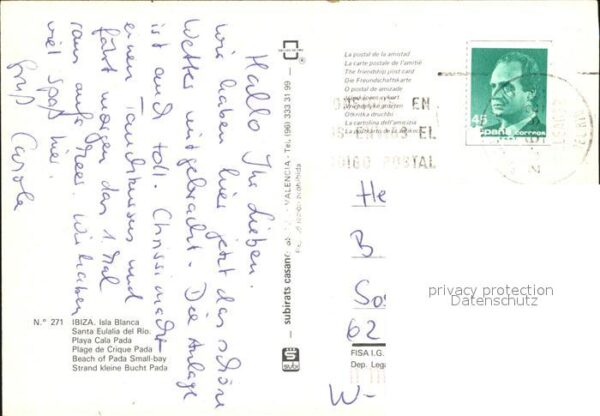 Hallo Ihr Lieben.
wir haben hier jetzt das schöne
Wetter mitgebracht. Die Anlage
ist auch toll. Chrissi macht
einen Tauchkursus und
fährt morgen das 1. Mal
raus aufs Meer. Wir haben
viel Spaß hier.
Gruß Carola
N.° 271 IBIZA. Isla Blanca
Santa Eulalia del Río.
Playa Cala Pada
Plage de Crique Pada
Beach of Pada Small-bay
Strand kleine Bucht Pada
subirats casanovas
VALENCIA - Tel. (96) 333 31 99
prohibida
subi
La postal de la amistad
La carte postale de l'amitié
The friendship post card
Die Freundschaftskarte
O postal de amizade
Otkritka druzhbi
La cartolina dell'amicizia
EN
EL
POSTAL
45
España correos
He
B
So
62
W-
privacy protection
Datenschutz
FISA I.G.
Dep. Lega